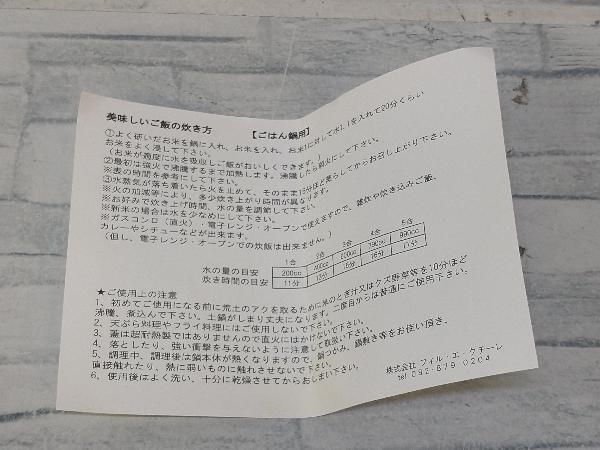 美味しいご飯の炊き方　【ごはん鍋用】
①よく研いだお米を鍋に入れ、お米を入れ、お米1に対して水1.1を入れて20分くらい
お米をよく浸して下さい。
(お米が適度に水を吸収しご飯がおいしくできます。)
②最初は強火で沸騰するまで加熱します。沸騰したら弱火にして下さい。
※表の時間を参考にして下さい。
③水蒸気が落ち着いたら火を止めて、そのまま15分ほど蒸らしてからお召し上がり下さい。
※火の加減等により、多少炊き上がり時間が異なります。
※お好みで炊き上げ時間、水の量を調節して下さい。
※新米の場合は水を少なめにして下さい。
※ガスコンロ(直火)・電子レンジ・オーブンで使えますので、雑炊や炊き込みご飯、
カレーやシチューなどが出来ます。
(但し、電子レンジ・オーブンでの炊飯は出来ません。)
1合 2合 3合 4合 5合
水の量の目安 200cc 400cc 600cc 790cc 990cc
炊き時間の目安 11分 15分 16分 17分
★ご使用上の注意
1、初めてご使用になる前に荒土のアクを取るために米のとぎ汁又はクズ野菜等を10分ほど
沸騰、煮込んで下さい。土鍋がしまり丈夫になります。二度目からは普通にご使用下さい。
2、天ぷら料理やフライ料理にはご使用しないで下さい。
3、蓋は超耐熱製ではありませんので直火にはかけないで下さい。
4、落としたり、強い衝撃を与えないように注意して直扱い下さい。
5、調理中、調理後は鍋本体が熱くなりますので、鍋つかみ、鍋敷き等をお使い頂き、
直接触れたり、熱に弱いものに触れさせないで下さい。
6、使用後はよく洗い、十分に乾燥させてからおしまい下さい。
株式会社 フィル・エ・クチーレ
tel 092-879-0204